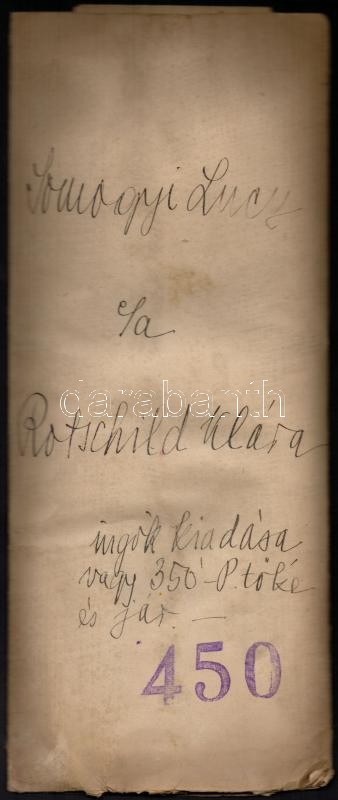 Somogyi Lucy
c/a
darabanth
Rotschild Klára
ingók kiadása
vagy 350 - P. tőke
és jár. —
450